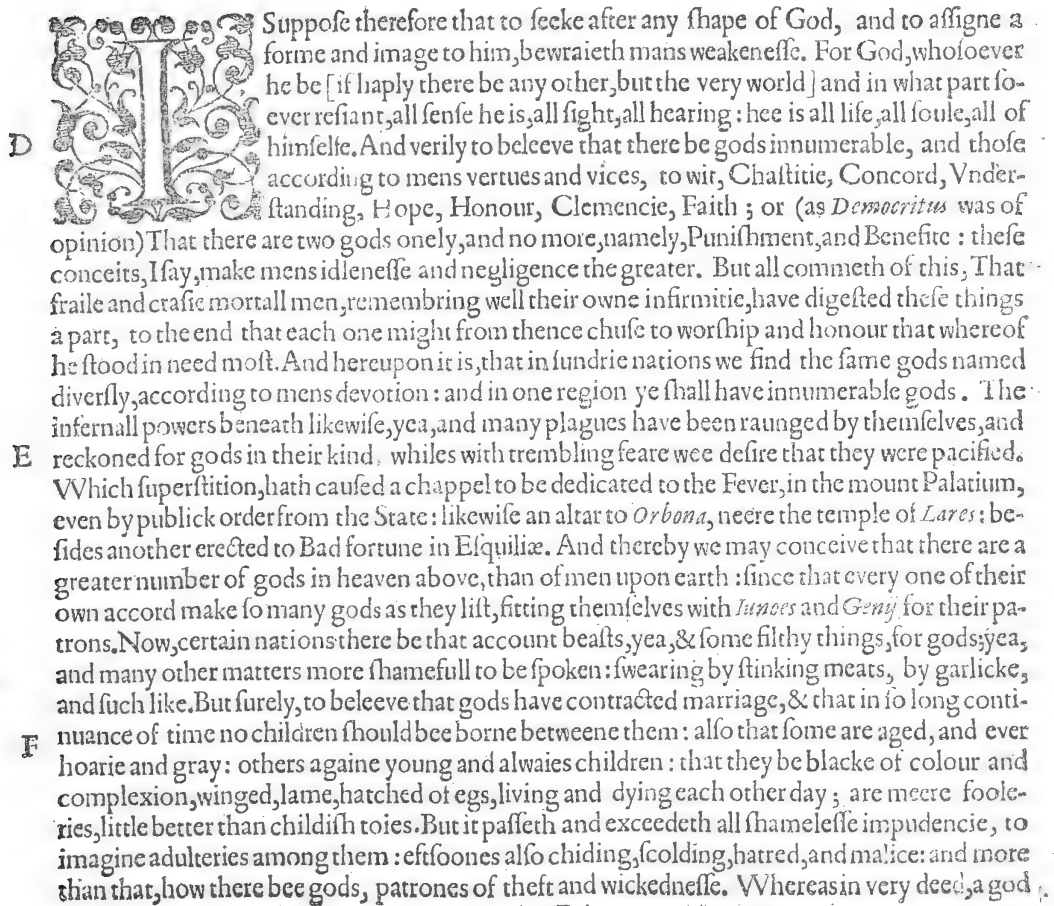 I Suppoſe therefore that to ſeeke after any ſhape of God, and to aſſigne a
forme and image to him,bewraieth mans weakeneſſe. For God,whoſoever
he be [if haply there be any other,but the very world] and in what part ſo-
ever reſiant,all ſenſe he is,all ſight,all hearing: hee is all life,all ſoule,all of
D himſelfe.And verily to beleeve that there be gods innumerable, and thoſe
according to mens vertues and vices, to wit, Chaſtitie, Concord, Vnder-
ſtanding, Hope, Honour, Clemencie, Faith ; or (as Democritus was of
opinion)That there are two gods onely,and no more,namely,Puniſhment,and Benefite : theſe
conceits,I ſay,make mens idleneſſe and negligence the greater. But all commeth of this,That
fraile and craſie mortall men,remembring well their owne infirmitie,have digeſted theſe things
a part, to the end that each one might from thence chuſe to worſhip and honour that whereof
he ſtood in need moſt.And hereupon it is,that in ſundrie nations we find the ſame gods named
diverſly,according to mens devotion: and in one region ye ſhall have innumerable gods. The
infernall powers beneath likewiſe,yea,and many plagues have been raunged by themſelves,and
E reckoned for gods in their kind, whiles with trembling feare wee deſire that they were pacified.
Which ſuperſtition,hath cauſed a chappel to be dedicated to the Fever,in the mount Palatium,
even by publick order from the State: likewiſe an altar to Orbona, neere the temple of Lares: be-
ſides another erected to Bad fortune in Eſquiliæ. And thereby we may conceive that there are a
greater number of gods in heaven above,than of men upon earth :ſince that every one of their
own accord make ſo many gods as they liſt,fitting themſelves with Iunoes and Genij for their pa-
trons.Now,certain nations there be that account beaſts,yea,& ſome filthy things,for gods;yea,
and many other matters more ſhamefull to be ſpoken:ſwearing by ſtinking meats, by garlicke,
and ſuch like.But ſurely,to beleeve that gods have contracted marriage,& that in ſo long conti-
F nuance of time no children ſhould bee borne betweene them: alſo that ſome are aged, and ever
hoarie and gray: others againe young and alwaies children : that they be blacke of colour and
complexion,winged,lame,hatched of egs,living and dying each other day ; are meere foole-
ries,little better than childiſh toies.But it paſſeth and exceedeth all ſhameleſſe impudencie, to
imagine adulteries among them : eftſoones alſo chiding,ſcolding,hatred,and malice: and more
than that,how there bee gods, patrones of theft and wickedneſſe. Whereas in very deed,a god